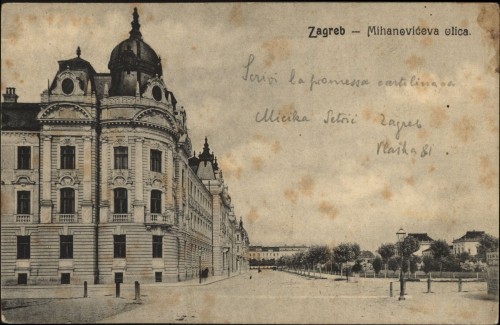 Zagreb – Mihanovićeva ulica.
la promessa cartolina
Micika Zagreb
Vlaška 81